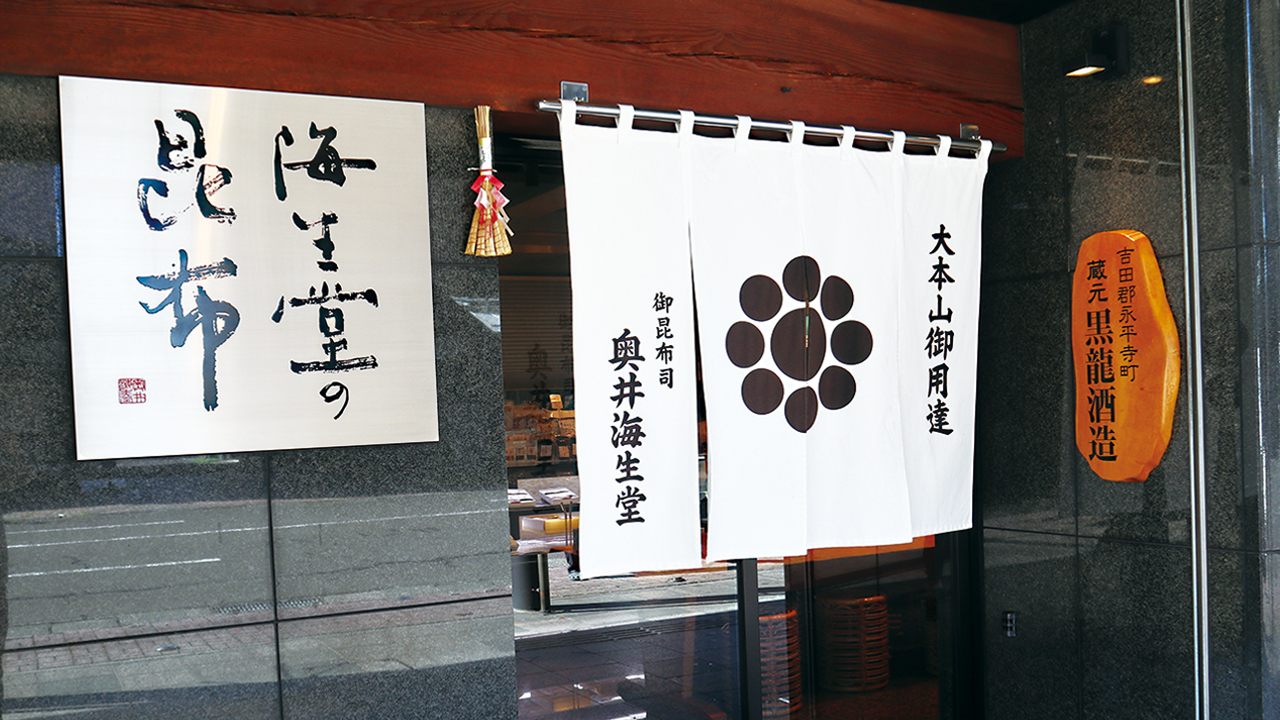 海生堂の
昆布
大本山御用達
御昆布司
奥井海生堂
吉田郡永平寺町
蔵元 黒龍酒造